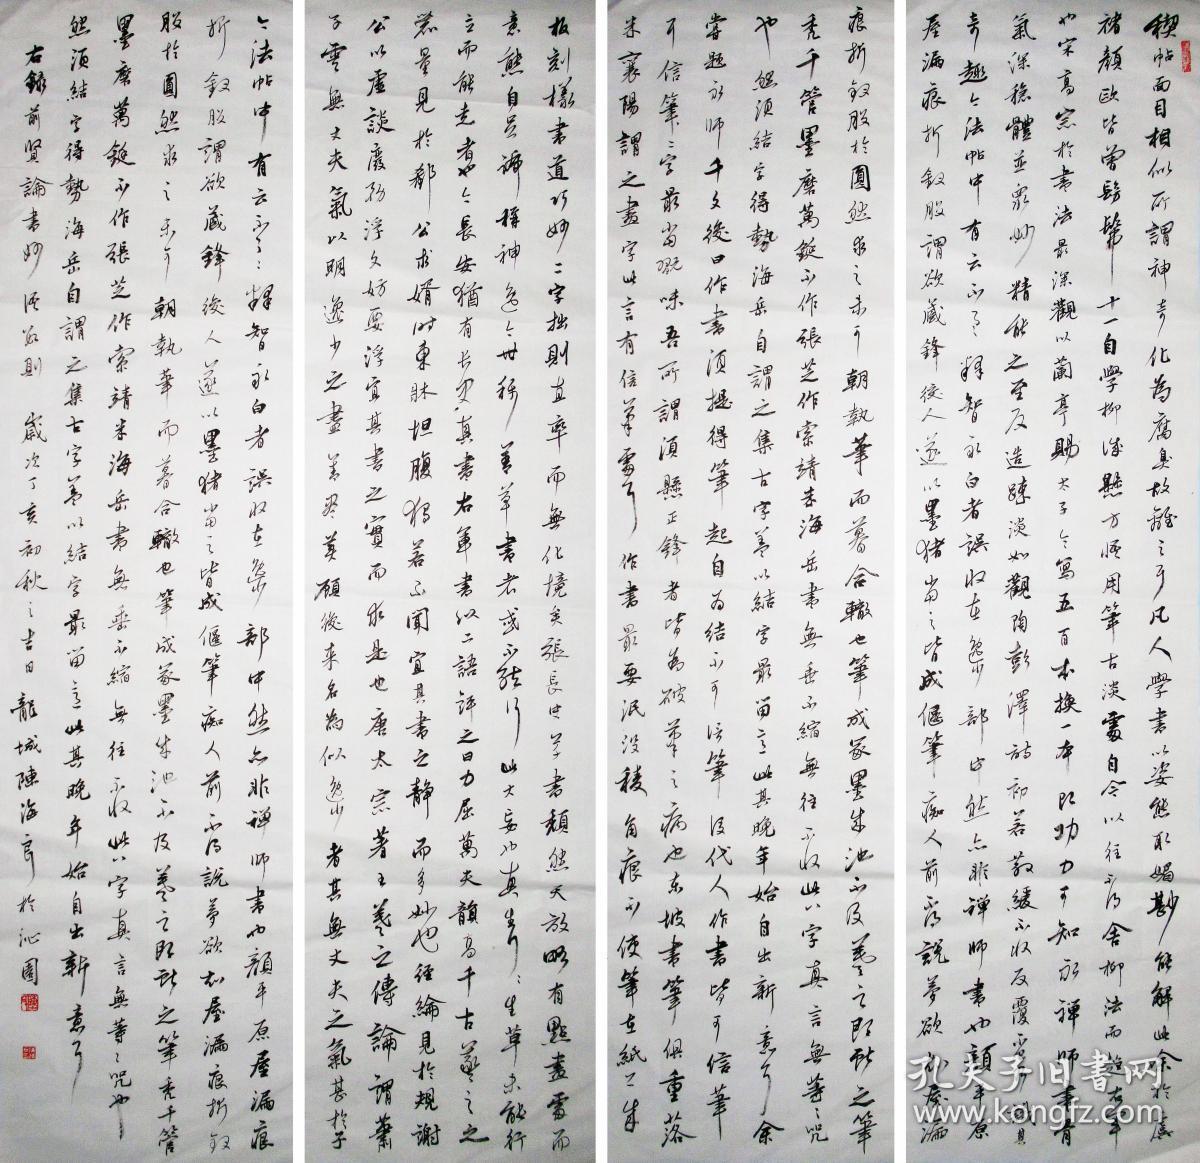 禊帖面目相似所謂神奇化為腐臭故離之耳凡人學書以姿態取媚尠能解此余於虞
褚顏歐皆曾髣髴十一自學柳誠懸方悟用筆古淡處自今以往不得舍柳法而趨右軍
也宋高宗於書法最深觀以蘭亭賜太子令寫五百本換一本即功力可知永禪師書有
氣深穩體並眾妙精能之至反造疎淡如觀陶彭澤詩初若散緩不收反覆不
奇趣今法帖中有云不具釋智永白者誤收在逸少部中然亦非禪師書也顏平原
屋漏痕折釵股謂欲藏鋒後人遂以墨豬當之皆成偃筆癡人前不得說夢欲知屋漏
痕折釵股於圓熟求之未可朝執筆而暮合轍也筆成冢墨成池不及羲之即獻之筆
禿千管墨磨萬鋌不作張芝作索靖米海岳書無垂不縮無往不收此八字真言無等等咒
也然須結字得勢海岳自謂之集古字蓋以結字最留意此其晚年始自出新意耳余
嘗題永師千文後曰作書須提得筆起自為結不可信筆後代人作書皆可信筆
耳信筆二字最當玩味吾所謂須懸正鋒者皆為破筆之病也東坡書筆俱重落
米襄陽謂之畫字此言有信筆處耳作書最要泯沒稜角痕不使筆在紙上成
板刻樣書道巧妙二字拙則直率而無化境矣張長史草書頹然天放略有點畫處而
意態自足號稱神逸今世稱善草書者或不能行此大妄也真生行行生草未能行
立而能走者也今長安猶有長史真書右軍書以二語評之曰力屈萬夫韻高千古羲之之
器量見於郗公求婿時東牀坦腹獨若不聞宜其書之靜而多妙也經綸見於規謝
公以虛談廢務浮文妨要浮宜其書之實而求是也唐太宗著王羲之傳論謂蕭
子雲無丈夫氣以明逸少之盡善盡美顧後來名為似逸少者其無丈夫之氣甚於子
今法帖中有云不具釋智永白者誤收在逸少部中然亦非禪師書也顏平原屋漏痕
折釵股謂欲藏鋒後人遂以墨豬當之皆成偃筆癡人前不得說夢欲知屋漏痕折釵
股於圓熟求之未可朝執筆而暮合轍也筆成冢墨成池不及羲之即獻之筆禿千管
墨磨萬鋌不作張芝作索靖米海岳書無垂不縮無往不收此八字真言無等等咒也
然須結字得勢海岳自謂之集古字蓋以結字最留意此其晚年始自出新意耳
右錄前賢論書妙語數則歲次丁亥初秋之吉日龍城陳海良於沁園
孔夫子旧书网
www.kongfz.com